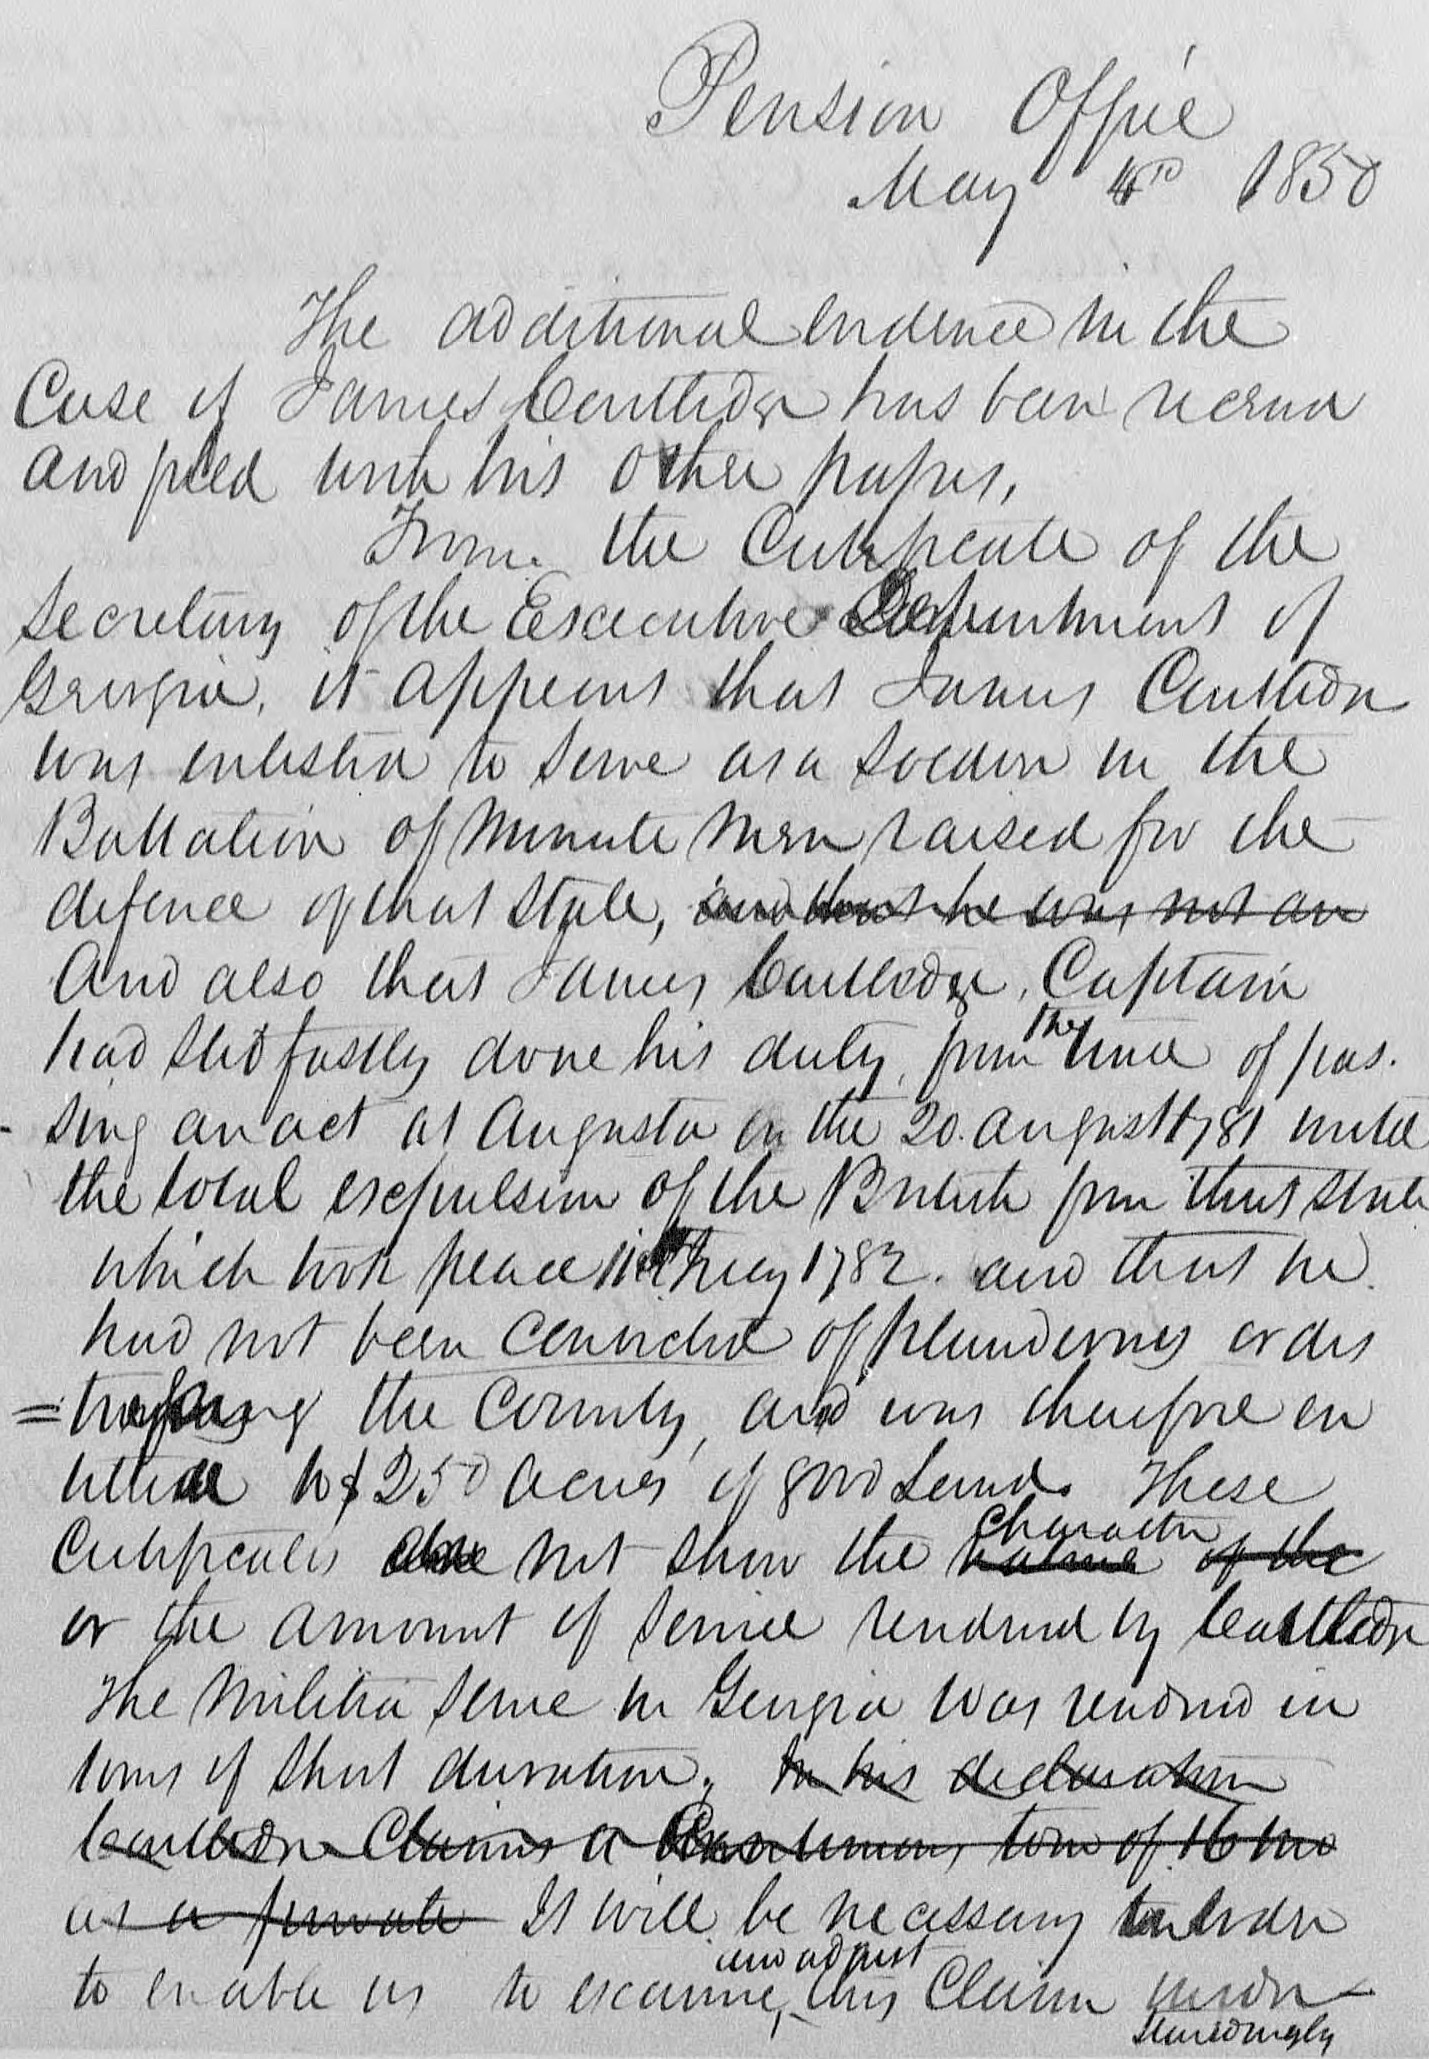 Pension Office
May 4th 1850
The additional evidence in the
Case of James Cartledge has been received
and filed with his other papers,
From the Certificate of the
Secretary of the Executive Department of
Georgia, it appears that James Cartledge
was enlisted to serve as a soldier in the
Battalion of Minute Men raised for the
defence of that State, and that he was not an
And also that James Cartledge, Captain
had stedfastly done his duty, from the time of pas-
-sing an act at Augusta on the 20. August 1781 until
the total expulsion of the British from that State
which took place July 1782. and that he
had not been convicted of plundering or dis
=tressing the County, and was therefore en
titled to 250 acres of good Land. These
Certificates do not show the character of the
or the amount of service rendered by Cartledge
The Militia serve in Georgia was rendered in
terms of short duration. In his declaration
Cartledge Claims a term of 16 mo
as a private It will be necessary in order
to enable us to examine, and adjust this Claim under-
standingly